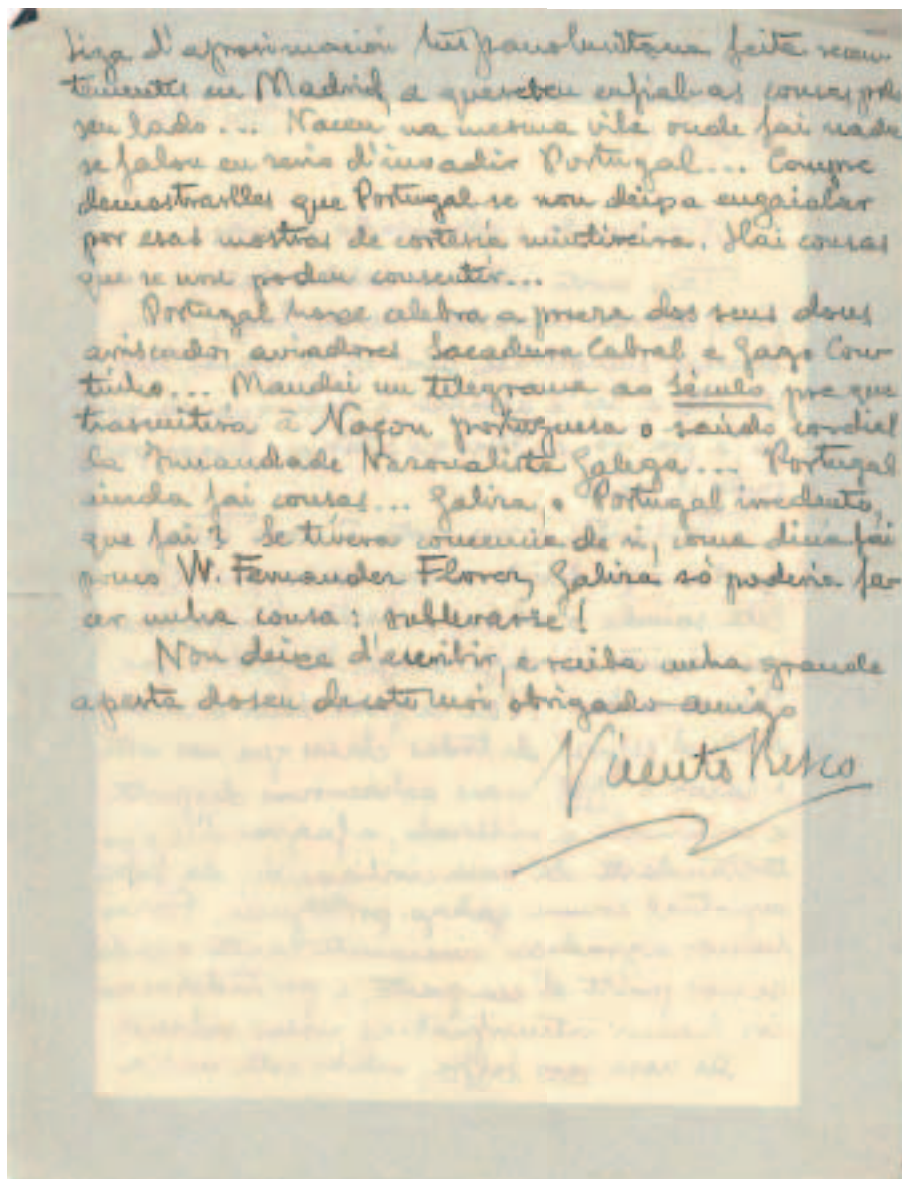 Liga d'aprosimación hispanolusitana feita recen-
temente en Madrid, e quereben enfialas cousas polo
seu lado... Naceu na mesma vila onde fai nada
se falou en serio d'invadir Portugal... Compre
demostrarlles que Portugal se non deixa engaiolar
por esas mostras de cortesía mintireira. Hai cousas
que se non poden consentir...
Portugal hoxe celebra a proeza dos seus dous
ariscados aviadores Sacadura Cabral e Gago Cou-
tinho... Mandei un telegrama ao Século pra que
trasmitira â Naçon portuguesa o saúdo cordial
da Irmandade Nazonalista Galega... Portugal
ainda fai cousas... Galiza, o Portugal irredento,
que fai? Se tivera concencia de si, como dixo fai
pouco W. Fernandez Florez, Galiza só poderia fa-
cer unha cousa: sublevarse!
Non deixe d'escribir, e reciba unha grande
aperta do seu decote moi obrigado amigo
Vicente Risco